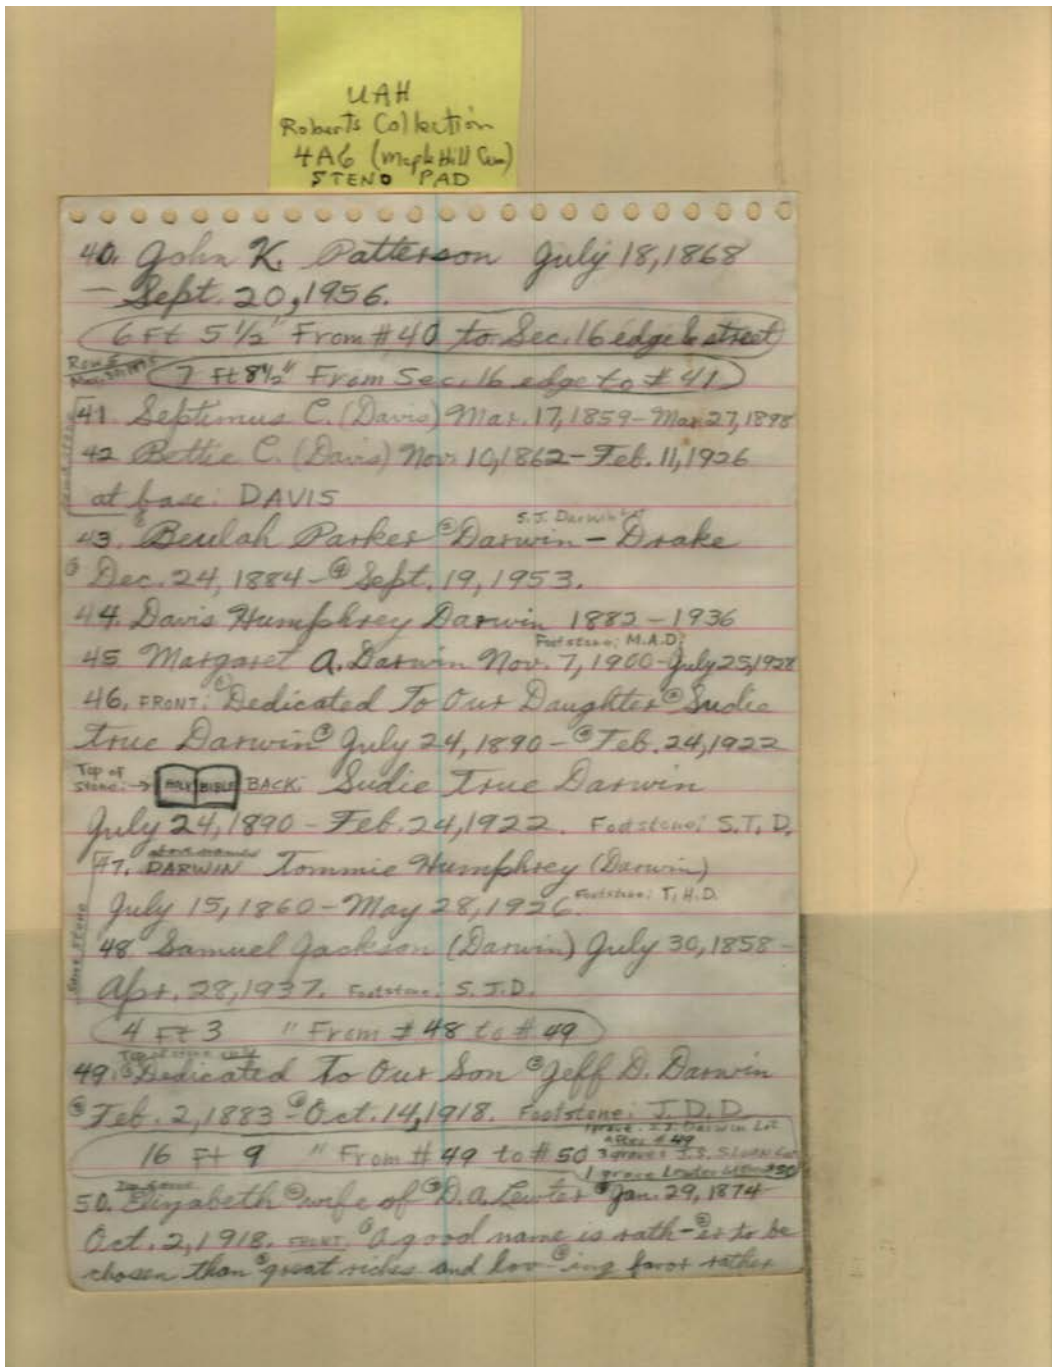 UAH
Roberts Collection
4A6 (Maple Hill Cem)
STENO PAD
40. John K. Patterson July 18, 1868
— Sept. 20, 1956.
6 Ft 5 1/2" From #40 to Sec. 16 edge & street
Row 5
7 Ft 8 1/2" From Sec. 16 edge to #41
41. Septimus C. (Davis) Mar. 17, 1859 - Mar. 27, 1898
42 Bettie C. (Davis) Nov. 10, 1862 - Feb. 11, 1926
at base: DAVIS
S. J. Darwin Lot
43. Beulah Parker ② Darwin - Drake
③ Dec. 24, 1884 - ④ Sept. 19, 1953.
44. Davis Humphrey Darwin 1882 - 1936
Footstone: M.A.D.
45 Margaret A. Darwin Nov. 7, 1900 - July 25, 1928
46. FRONT: ① Dedicated To Our Daughter ② Sudie
True Darwin ③ July 24, 1890 - ④ Feb. 24, 1922
Top of
Stone: → HOLY BIBLE BACK: Sudie True Darwin
July 24, 1890 - Feb. 24, 1922. Footstone: S.T.D.
47. DARWIN Tommie Humphrey (Darwin)
July 15, 1860 - May 28, 1926. Footstone: T.H.D.
Same stone
48. Samuel Jackson (Darwin) July 30, 1858 -
Apr. 28, 1937. Footstone: S.J.D.
4 Ft 3 " From #48 to #49
Top of stone
49. ① Dedicated To Our Son ② Jeff D. Darwin
③ Feb. 2, 1883 - ④ Oct. 14, 1918. Footstone: J.D.D.
1 grave S.J. Darwin Lot
after #49
16 Ft 9 " From #49 to #50 3 graves J.S. Lot
1 grave #50
50. Elizabeth ② wife of ③ D.A. Lewter ④ Jan. 29, 1874
Oct. 2, 1918. FRONT: ① A good name is rath- ② er to be
chosen than ③ great riches and lov- ④ ing favor rather